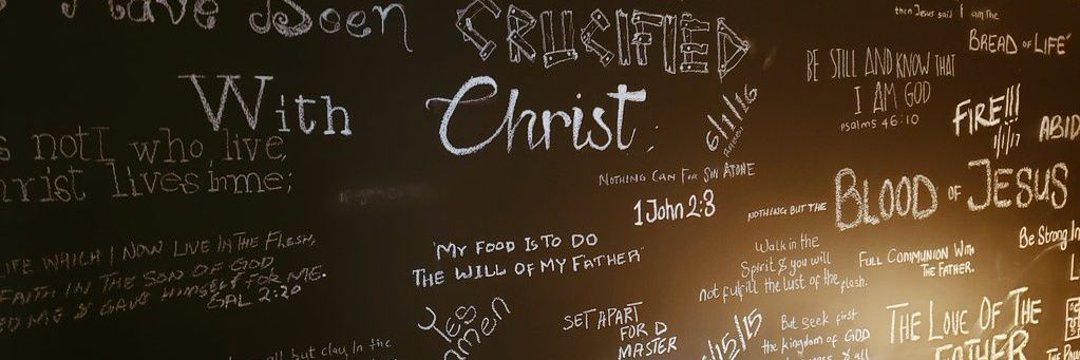 Have Been CRUCIFIED
With Christ;
not I who live,
Christ lives in me;
LIFE WHICH I NOW LIVE IN THE FLESH,
FAITH IN THE SON OF GOD
ME & GAVE HIMSELF FOR ME.
GAL 2:20
but clay in the
6/1/16
NOTHING CAN FOR SIN ATONE
1 John 2:3
NOTHING BUT THE BLOOD OF JESUS
"MY FOOD IS TO DO
THE WILL OF MY FATHER"
Yes
amen
SET APART
FOR D
MASTER
then Jesus said I am the
BREAD OF LIFE"
BE STILL AND KNOW THAT
I AM GOD
psalms 46:10
FIRE!!!
1/1/17
ABID
Be Strong In
Walk in the
Spirit & you will
not fulfill the lust of the flesh.
FULL COMMUNION WITH
THE FATHER.
But seek first
the kingdom of GOD
THE LOVE OF THE
FATHER